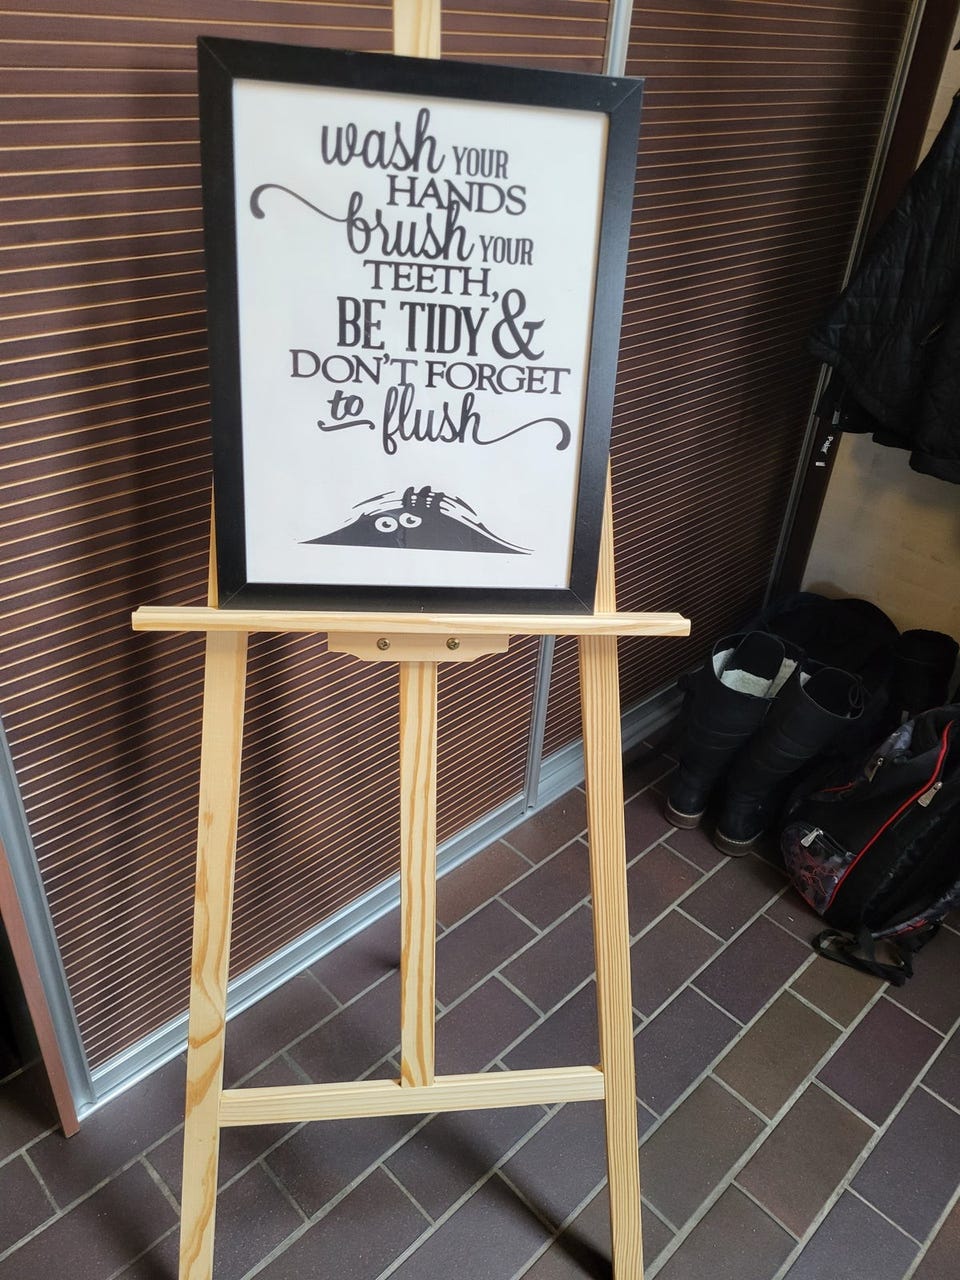 wash YOUR
HANDS
brush YOUR
TEETH,
BE TIDY &
DON'T FORGET
to flush